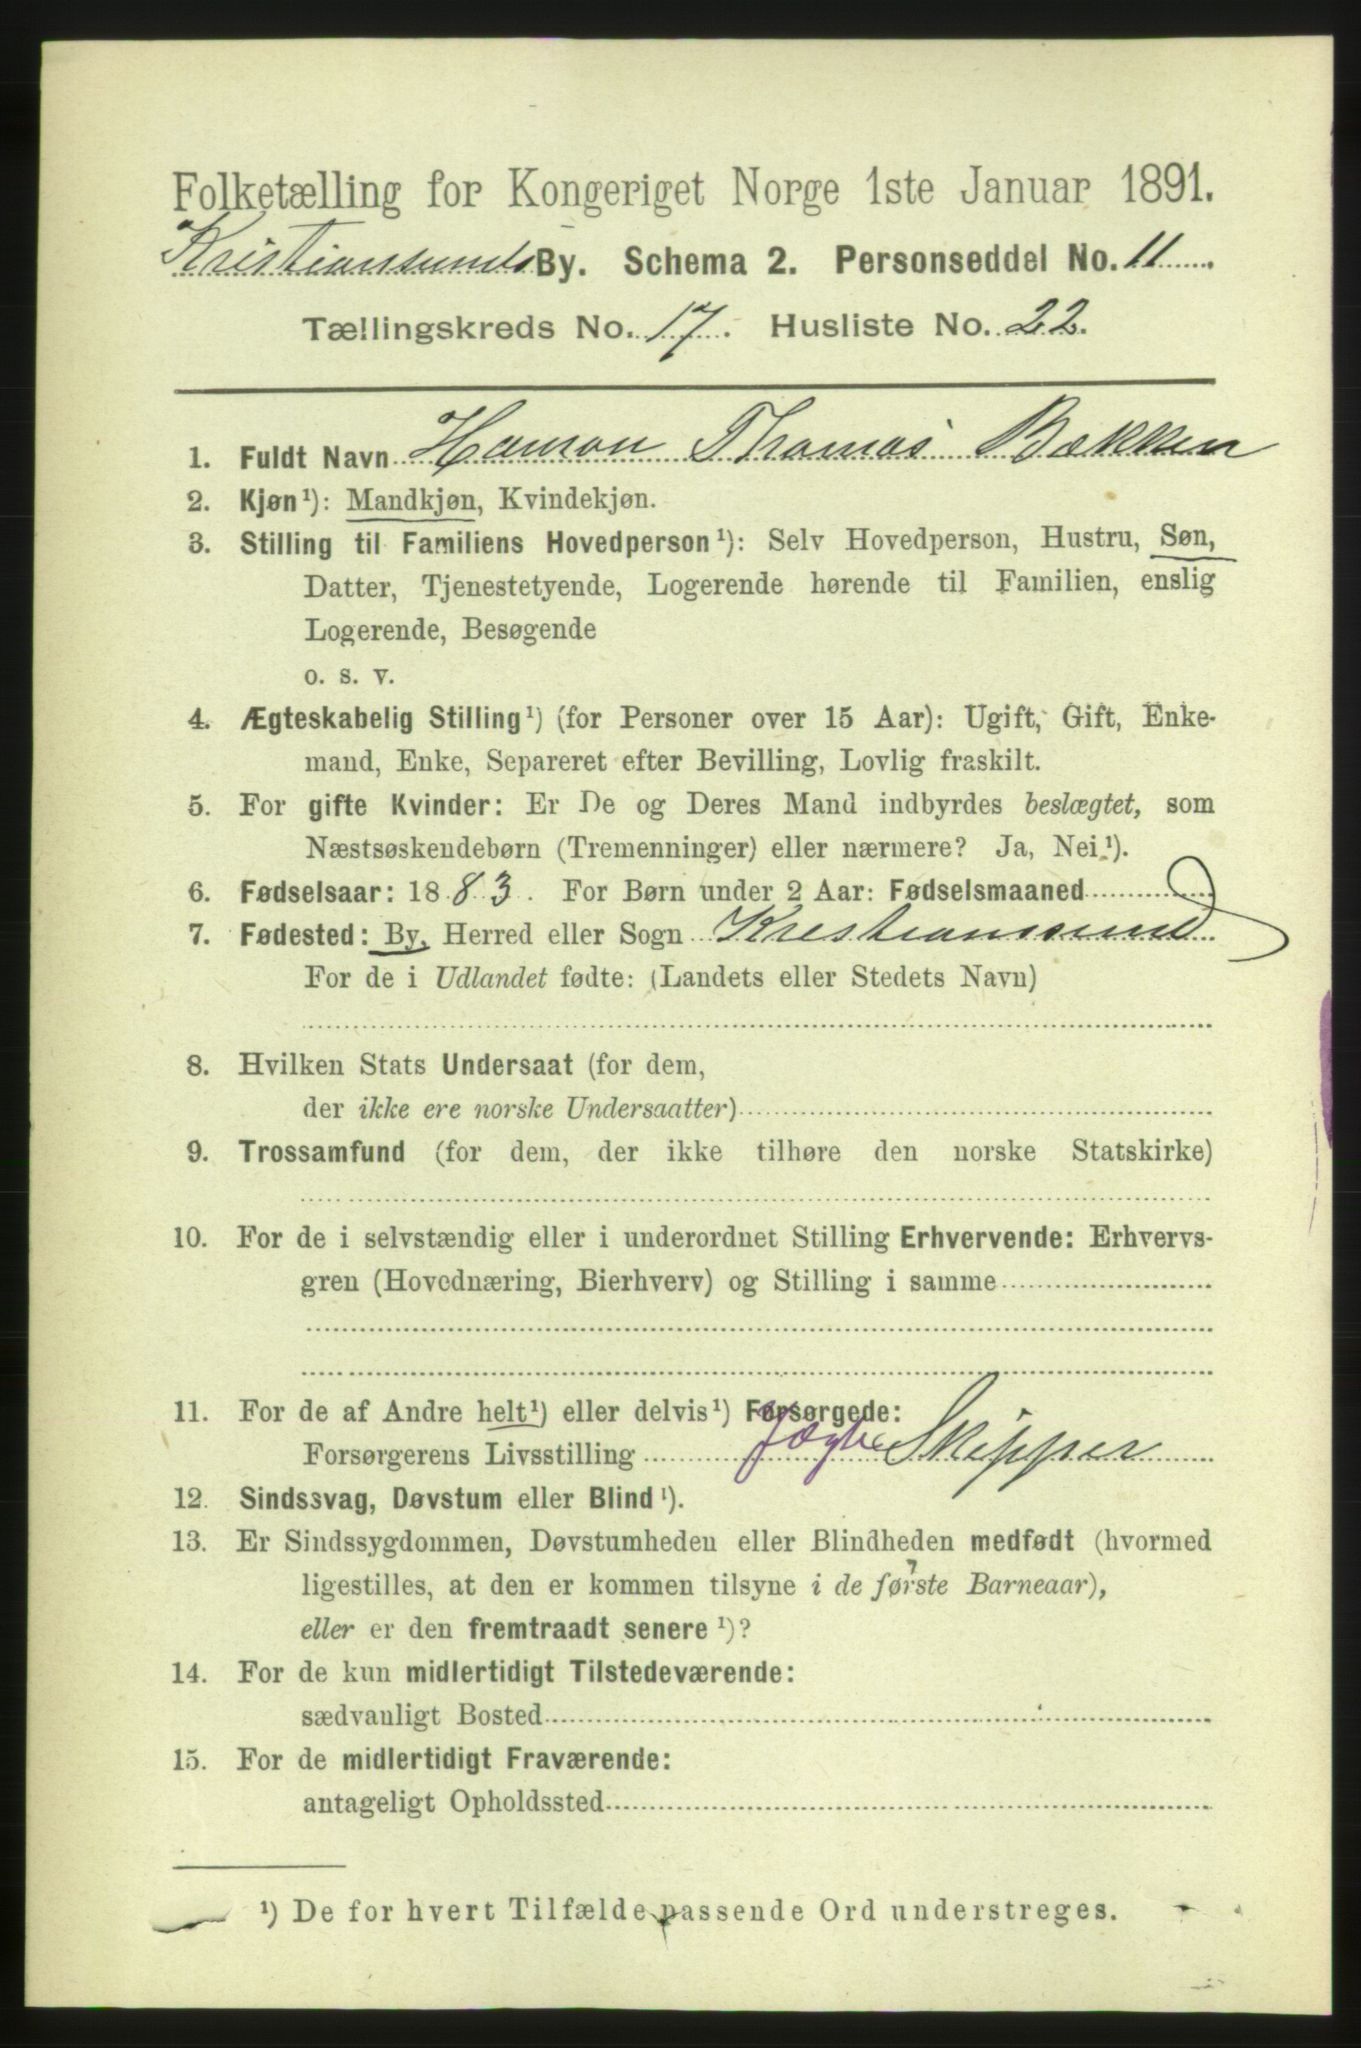 Folketælling for Kongeriget Norge 1ste Januar 1891.
Kristiansunds By. Schema 2. Personseddel No. 11
Tællingskreds No. 17. Husliste No. 22.
1. Fuldt Navn Hanson Thomas Bækken
2. Kjøn¹): Mandkjøn, Kvindekjøn.
3. Stilling til Familiens Hovedperson¹): Selv Hovedperson, Hustru, Søn,
Datter, Tjenestetyende, Logerende hørende til Familien, enslig
Logerende, Besøgende
o. s. v.
4. Ægteskabelig Stilling¹) (for Personer over 15 Aar): Ugift, Gift, Enke-
mand, Enke, Separeret efter Bevilling, Lovlig fraskilt.
5. For gifte Kvinder: Er De og Deres Mand indbyrdes beslægtet, som
Næstsøskendebørn (Tremenninger) eller nærmere? Ja, Nei¹).
6. Fødselsaar: 1883. For Børn under 2 Aar: Fødselsmaaned
7. Fødested: By, Herred eller Sogn Krestianssund
For de i Udlandet fødte: (Landets eller Stedets Navn)
8. Hvilken Stats Undersaat (for dem,
der ikke ere norske Undersaatter)
9. Trossamfund (for dem, der ikke tilhøre den norske Statskirke)
10. For de i selvstændig eller i underordnet Stilling Erhvervende: Erhvervs-
gren (Hovednæring, Bierhverv) og Stilling i samme
11. For de af Andre helt¹) eller delvis¹) Forsørgede:
Forsørgerens Livsstilling Jægte Skipper
12. Sindssvag, Døvstum eller Blind¹).
13. Er Sindssygdommen, Døvstumheden eller Blindheden medfødt (hvormed
ligestilles, at den er kommen tilsyne i de første Barneaar),
eller er den fremtraadt senere¹)?
14. For de kun midlertidigt Tilstedeværende:
sædvanligt Bosted
15. For de midlertidigt Fraværende:
antageligt Opholdssted
¹) De for hvert Tilfælde passende Ord understreges.